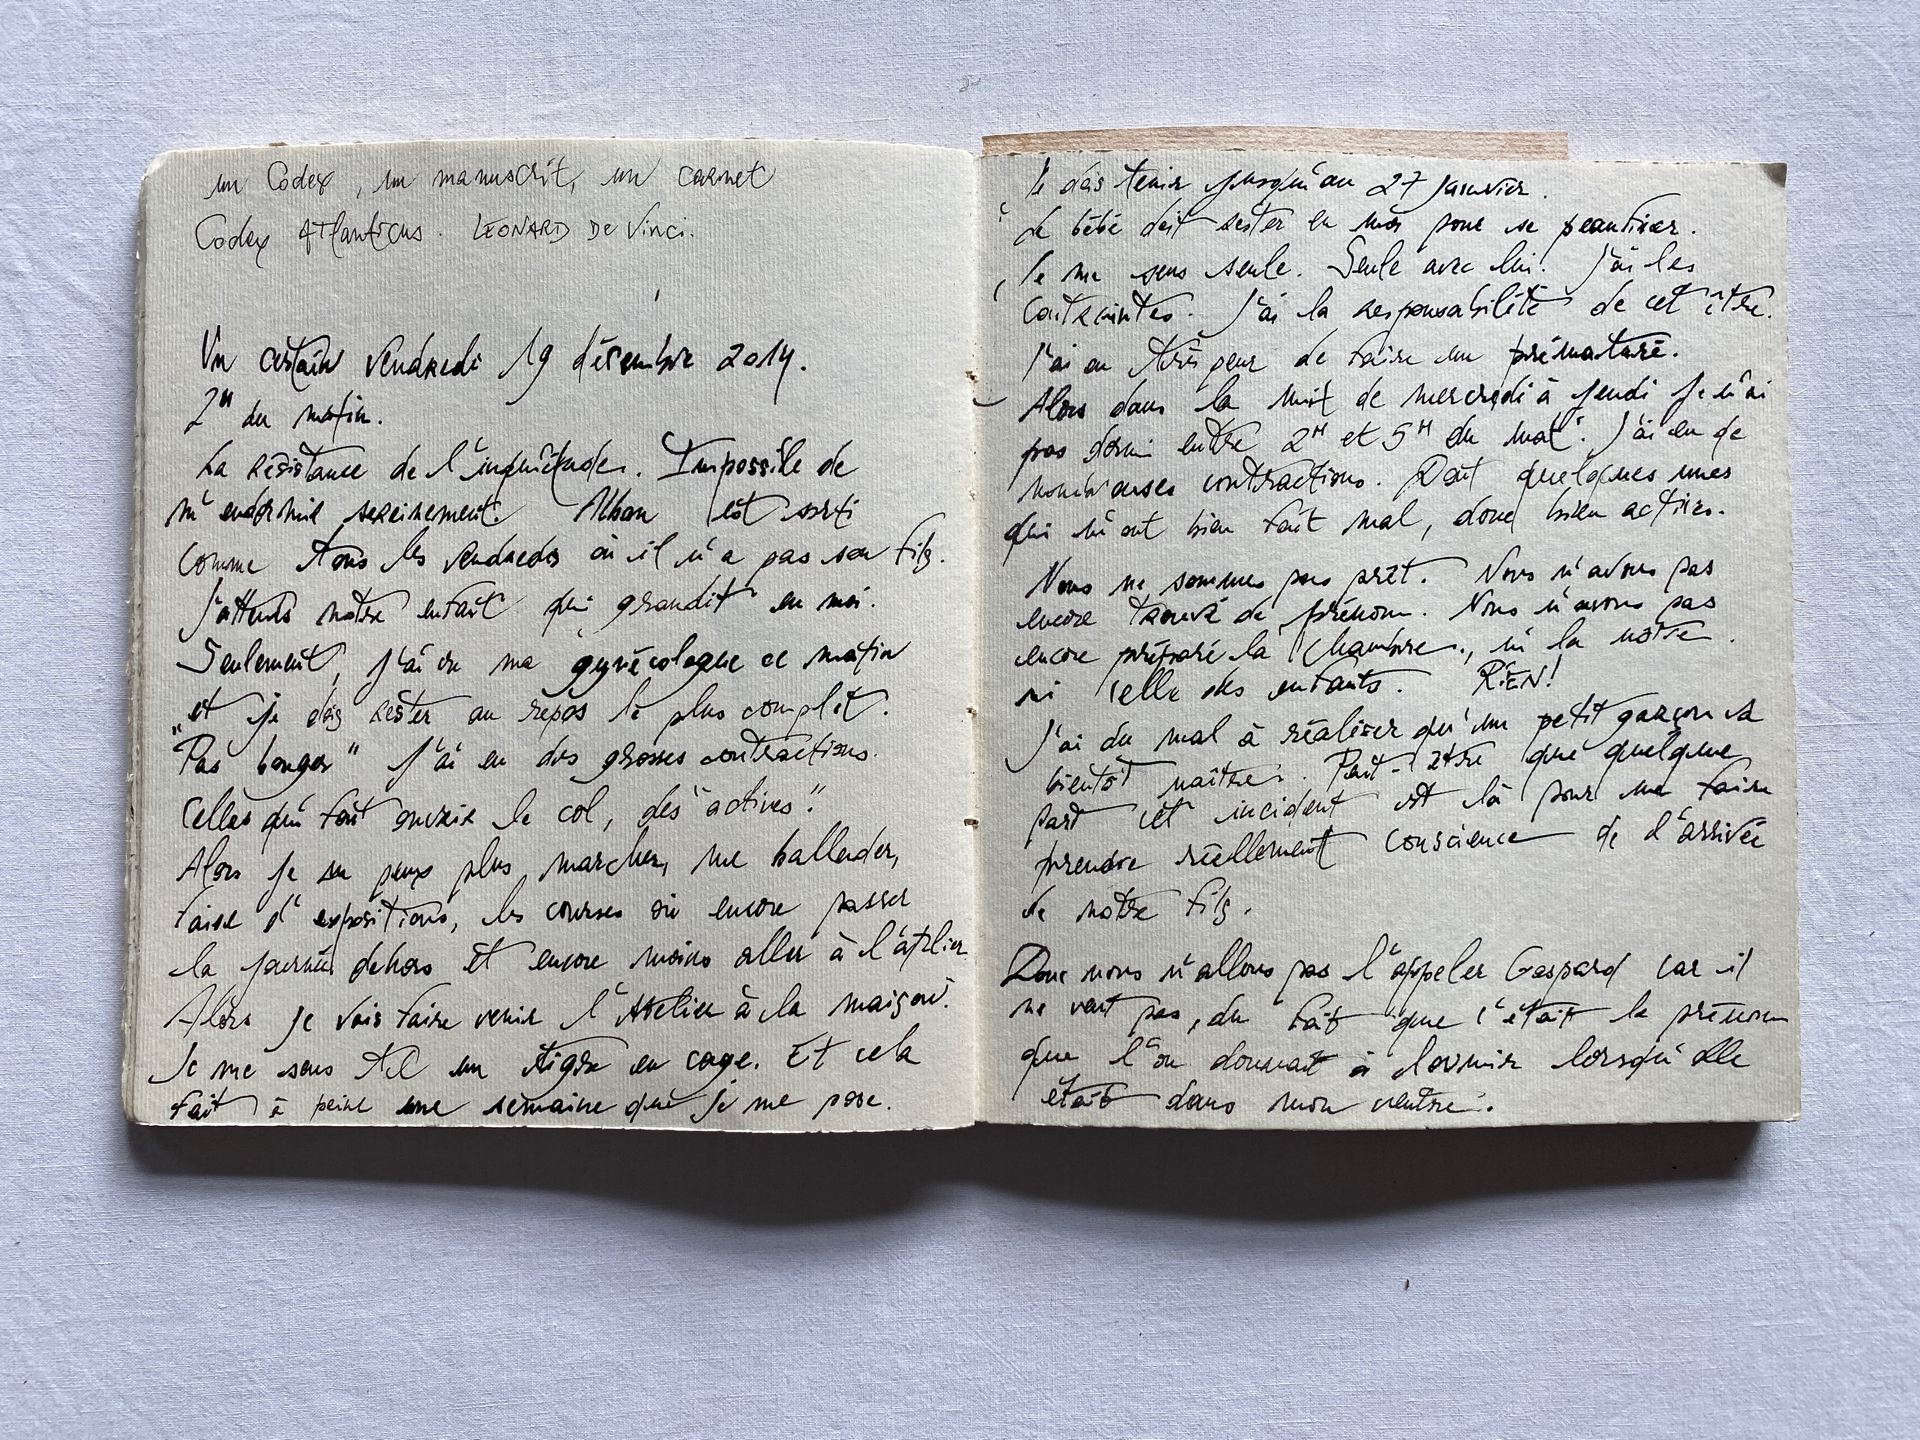 un Codex, un manuscrit, un carnet
Codex Atlanticus. LEONARD De Vinci.
Un certain Vendredi 19 décembre 2014.
2H du matin.
La Résistance de l'inquiétude. Impossible de
m'endormir sereinement. Alban est sorti
comme tous les vendredis où il n'a pas son fils.
J'attends notre enfant qui grandit en moi.
Seulement, j'ai vu ma gynécologue ce matin
et je dois rester au repos le plus complet.
"Pas bouger" J'ai eu des grosses contractions.
Celles qui font ouvrir le col, des "actives".
Alors je ne peux plus marcher, me ballader,
faire d'expositions, les courses ou encore passer
la journée dehors et encore moins aller à l'atelier
Alors je vais faire venir l'Atelier à la maison.
Je me sens tel un tigre en cage. Et cela
fait à peine une semaine que je me pose.
Je dois tenir jusqu'au 27 janvier.
Le bébé doit rester en moi pour se peaufiner.
Je me sens seule. Seule avec lui. J'ai les
contraintes. J'ai la responsabilité de cet être.
J'ai eu très peur de faire un prématuré.
Alors dans la nuit de mercredi à jeudi je n'ai
pas dormi entre 2H et 5H du mat'. J'ai eu de
nombreuses contractions. Dont quelques unes
qui m'ont bien fait mal, donc bien actives.
Nous ne sommes pas prêt. Nous n'avons pas
encore trouvé de prénom. Nous n'avons pas
encore préparé la chambre, ni la notre
ni celle des enfants. RIEN!
J'ai du mal à réaliser qu'un petit garçon va
bientôt naître. Peut-être que quelque
part cet incident est là pour me faire
prendre réellement conscience de l'arrivée
de notre fils.
Donc nous n'allons pas l'appeler Gaspard car il
ne veut pas, du fait que c'était le prénom
que l'on donnait à lorsqu'elle
était dans mon ventre.